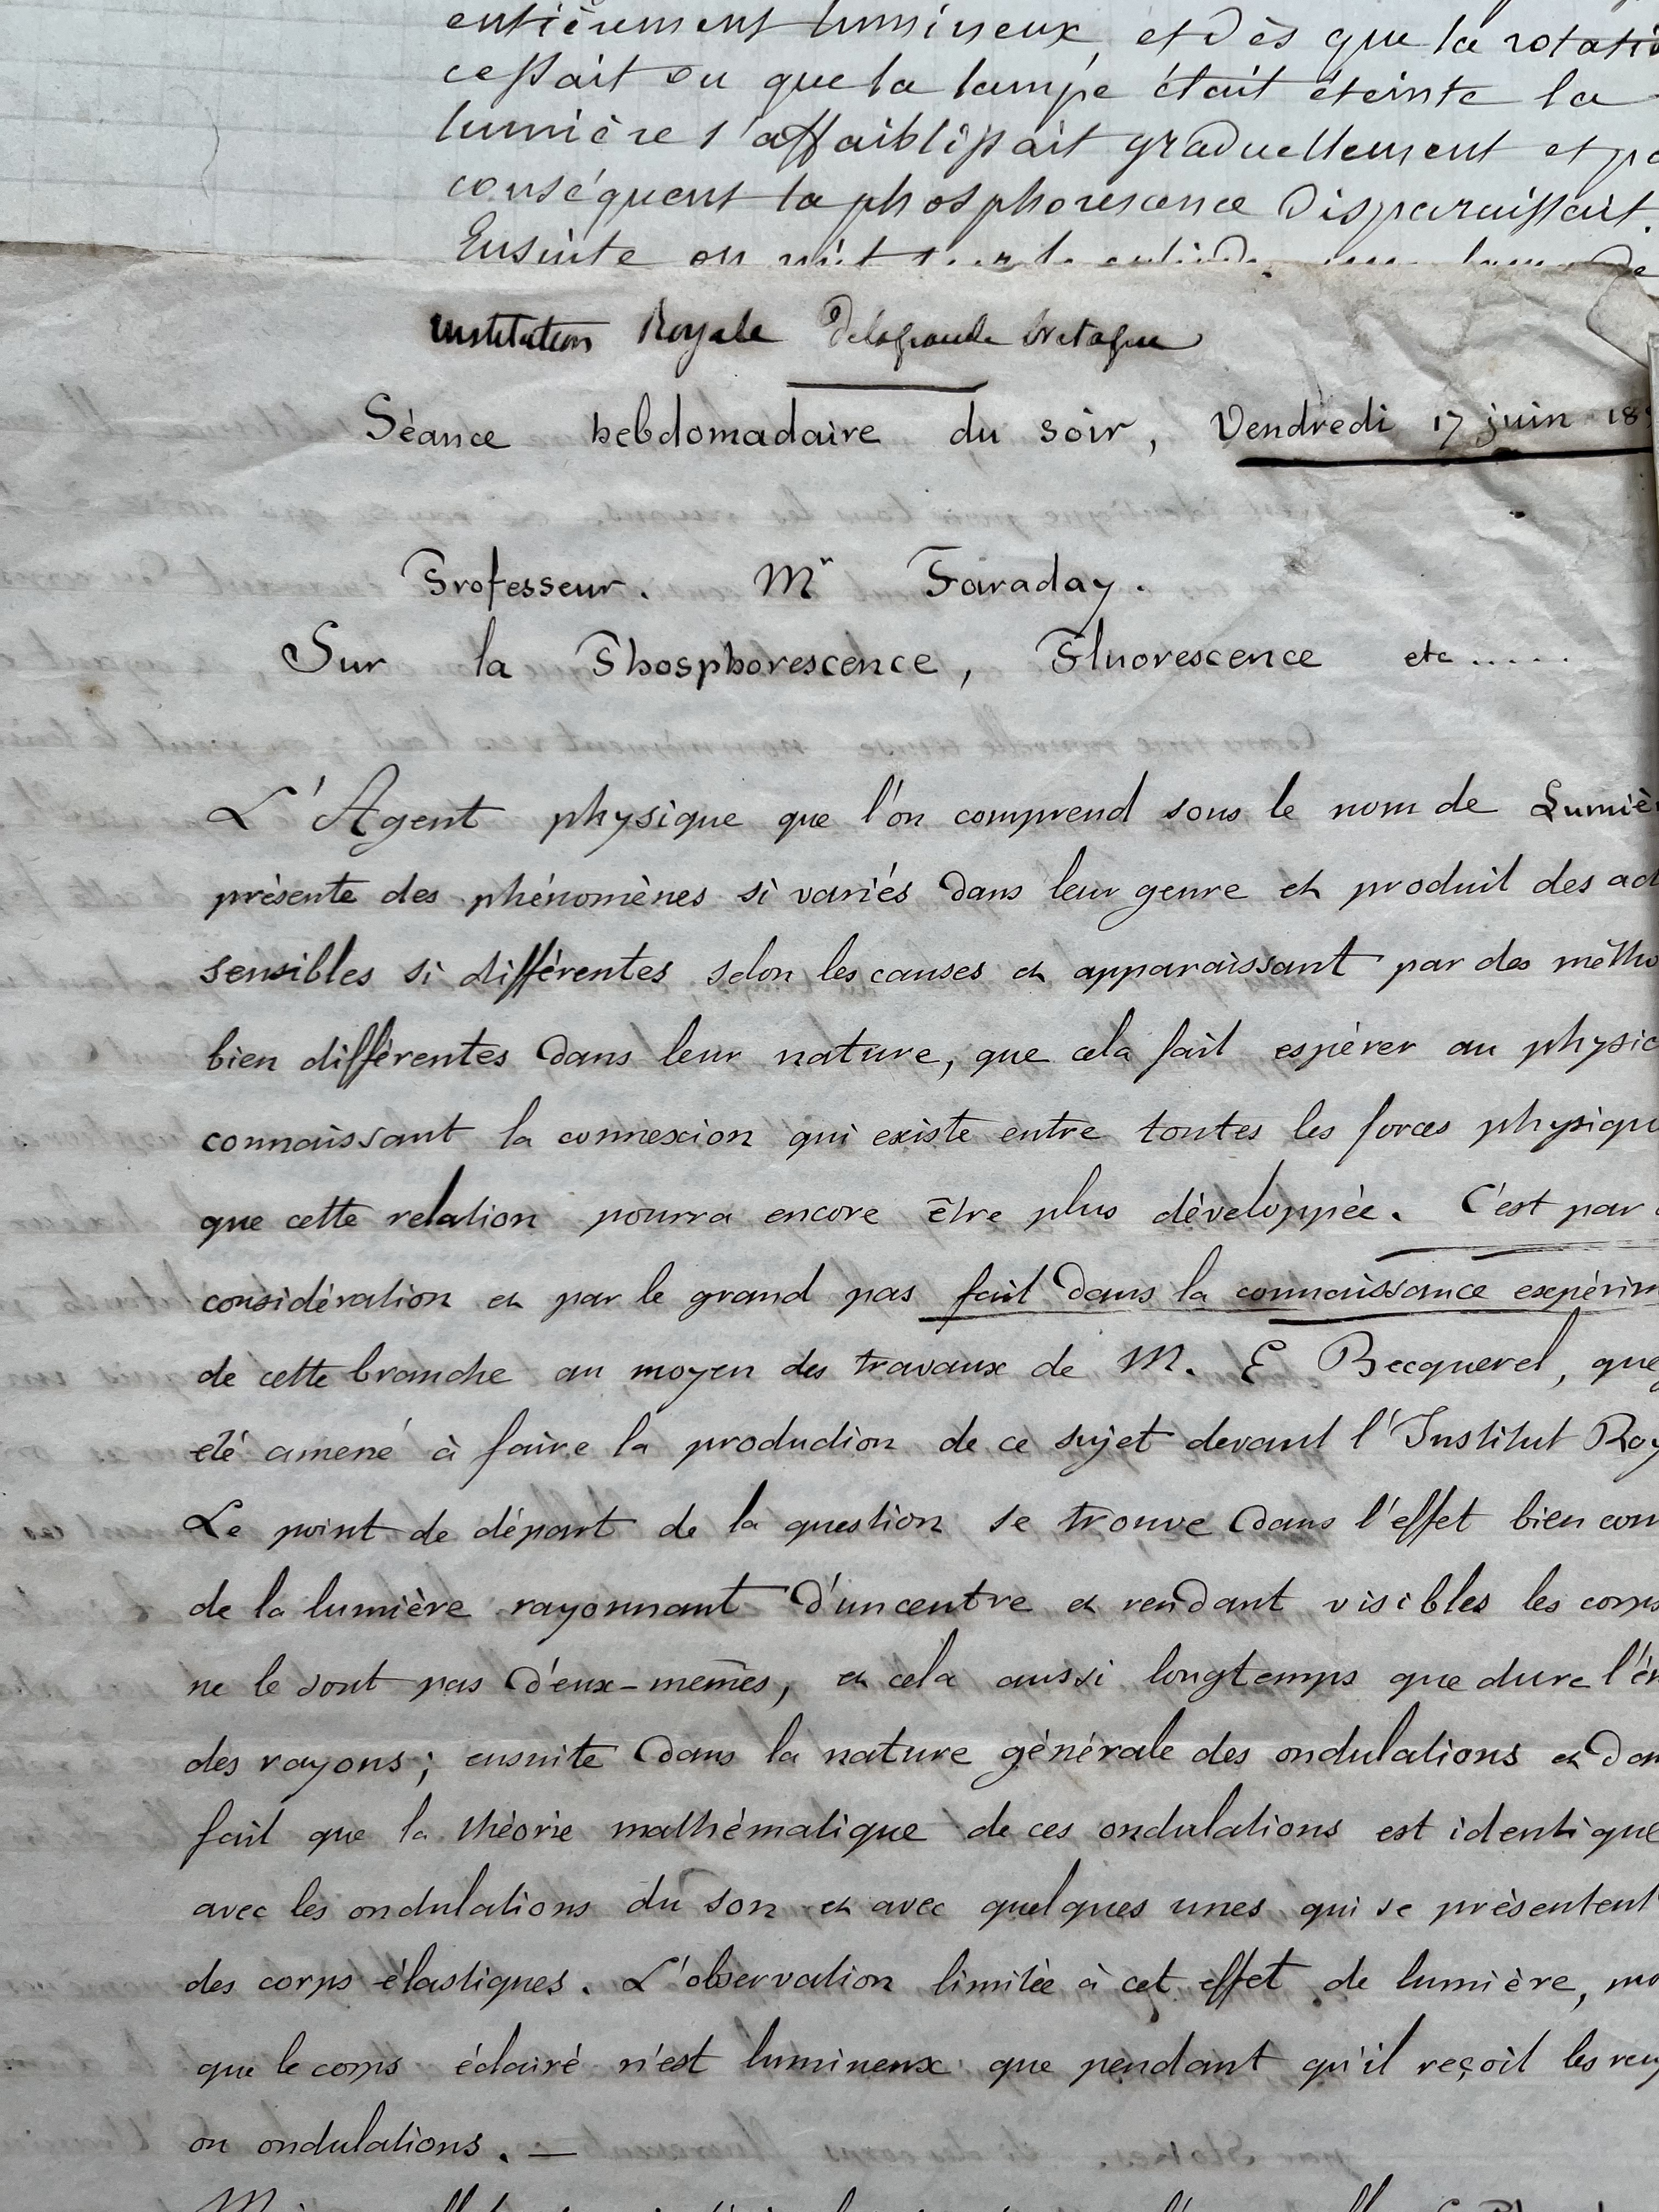 entièrement lumineux, et dès que la rotatio
cessait ou que la lampe était éteinte la
lumière s'affaiblissait graduellement et pa
conséquent la phosphorescence disparaissait.
Ensuite on
Institution Royale de la grande bretagne
Séance hebdomadaire du soir, Vendredi 17 juin 18
Professeur. Mr Faraday.
Sur la Phosphorescence, Fluorescence etc.....
L'Agent physique que l'on comprend sous le nom de Lumiè
présente des phénomènes si variés dans leur genre et produit des act
sensibles si différentes selon les causes et apparaissant par des métho
bien différentes dans leur nature, que cela fait espérer au physic
connaissant la connexion qui existe entre toutes les forces physiqu
que cette relation pourra encore être plus développée. C'est par
considération et par le grand pas fait dans la connaissance expérim
de cette branche au moyen des travaux de M. E Becquerel, que
été amené à faire la production de ce sujet devant l'Institut Roy
Le point de départ de la question se trouve dans l'effet bien con
de la lumière rayonnant d'un centre et rendant visibles les corps
ne le sont pas d'eux-mêmes, et cela aussi longtemps que dure l'ém
des rayons; ensuite dans la nature générale des ondulations et dan
fait que la théorie mathématique de ces ondulations est identique
avec les ondulations du son et avec quelques unes qui se présentent
des corps élastiques. L'observation limitée à cet effet de lumière, mo
que le corps éclairé n'est lumineux que pendant qu'il reçoit les ray
ou ondulations. —